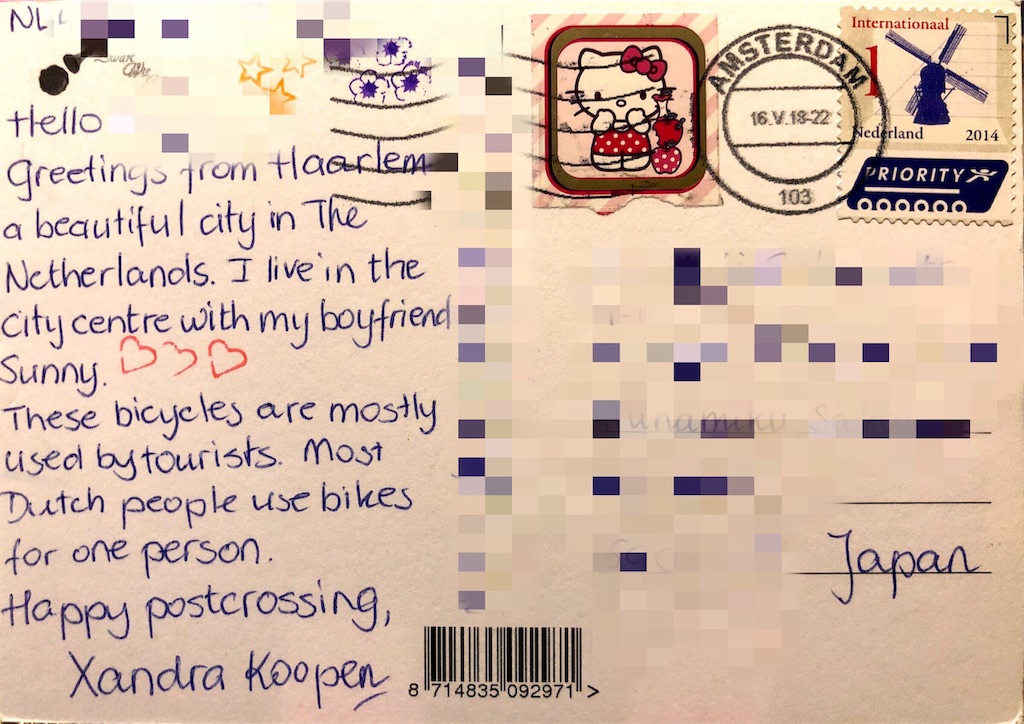 NL
Hello
Greetings from Haarlem
a beautiful city in The
Netherlands. I live in the
city centre with my boyfriend
Sunny.
These bicycles are mostly
used by tourists. Most
Dutch people use bikes
for one person.
Happy postcrossing,
Xandra Koopen
AMSTERDAM
16.V.18-22
103
Internationaal
1
Nederland 2014
PRIORITY
Japan
8 714835 092971 >